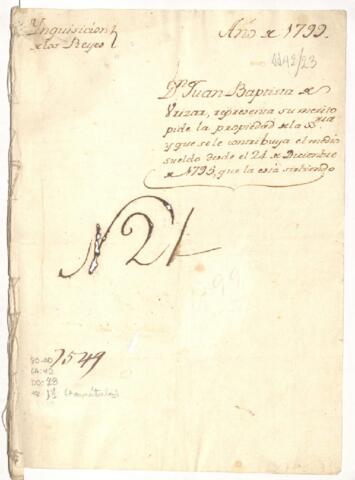 Ynquisicion
de los Reyes
Año de 1799.
SO42/23
Dn Juan Baptista de
Urizar, representa su merito
pide la propiedad de la Sria
y que se le contribuya el medio
sueldo desde el 24 de Diciembre
de 1795, que la está sirviendo
N 21
1549
CA: 42
DO: 23